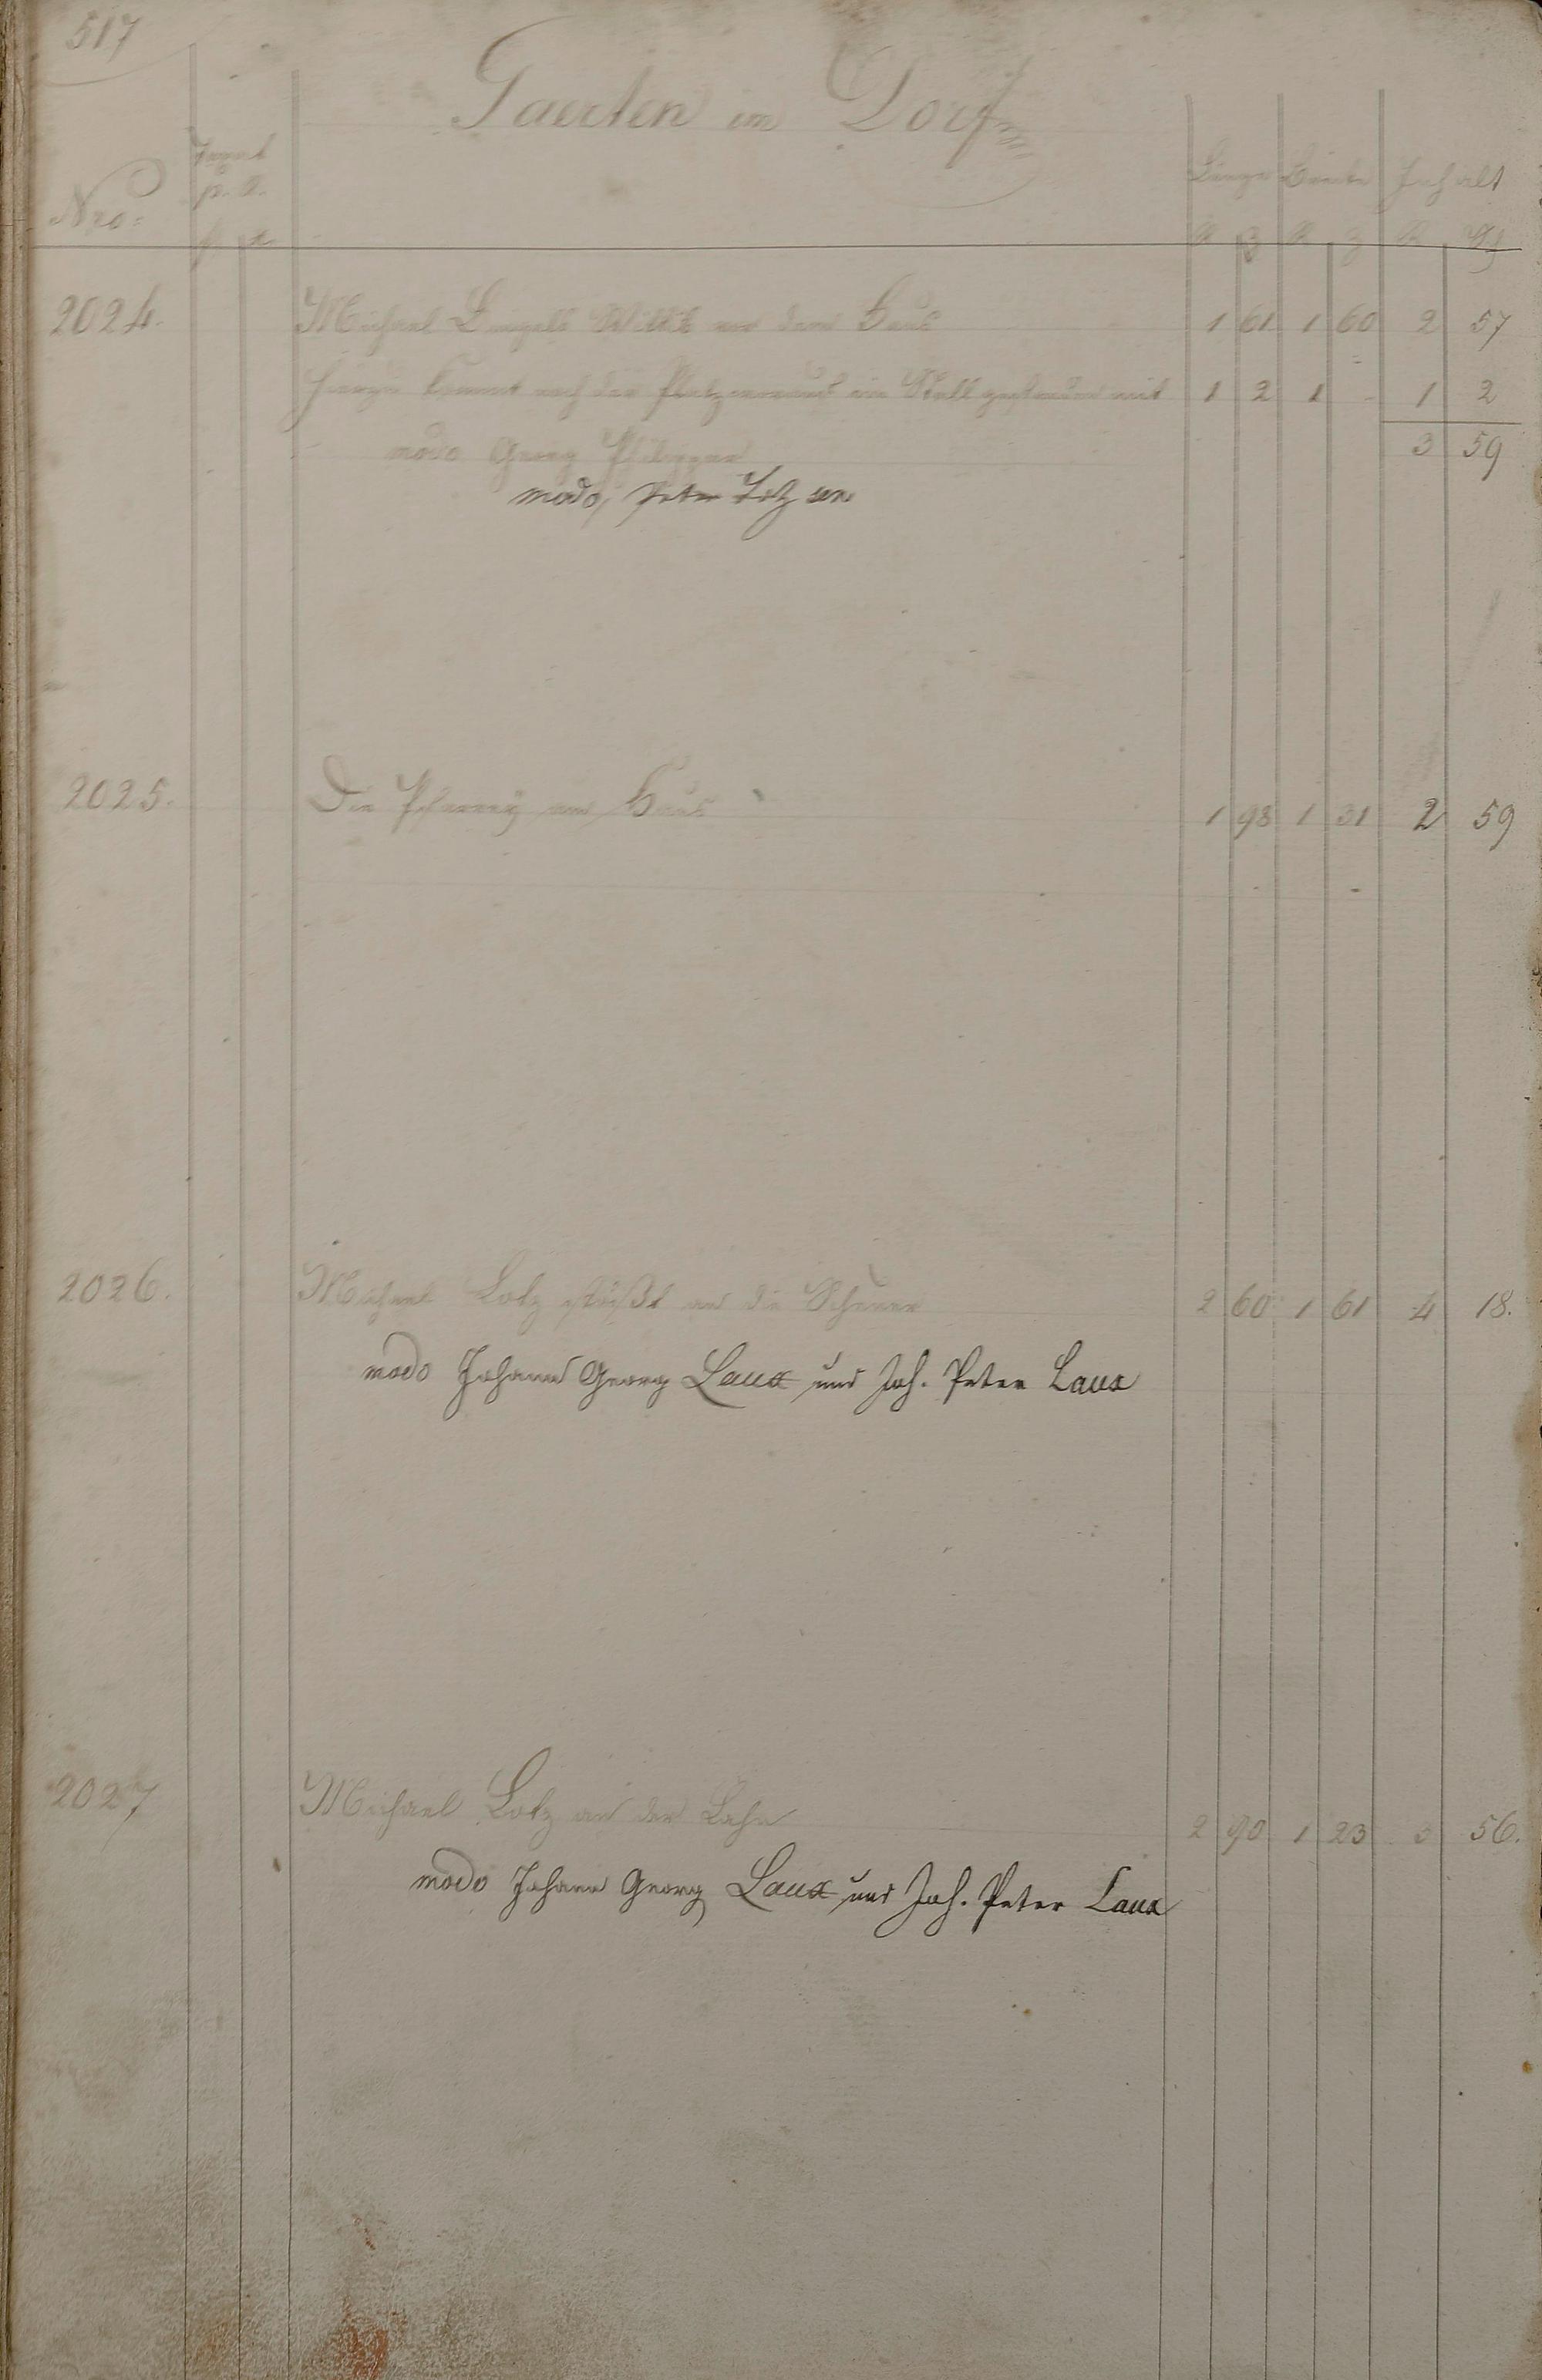 517
Gaerten im Dorf
Nro: Länge Breite Inhalt
2024. Michael Wittib vor dem Haus 1 61 1 60 2 57
Hierzu kommt noch der Platz worauf ein Stall gestanden mit 1 2 1 - 1 2
modo Georg 3 59
modo, Peter
2025. Die Pfarrey am Haus 1 98 1 31 2 59
2026. Michael Lotz stößt an die Scheuer 2 60 1 61 4 18.
modo Johann Georg Laux und Joh. Peter Laux
2027 Michael Lotz an der Lahn 2 90 1 23 3 56.
modo Johann Georg Laux und Joh. Peter Laux